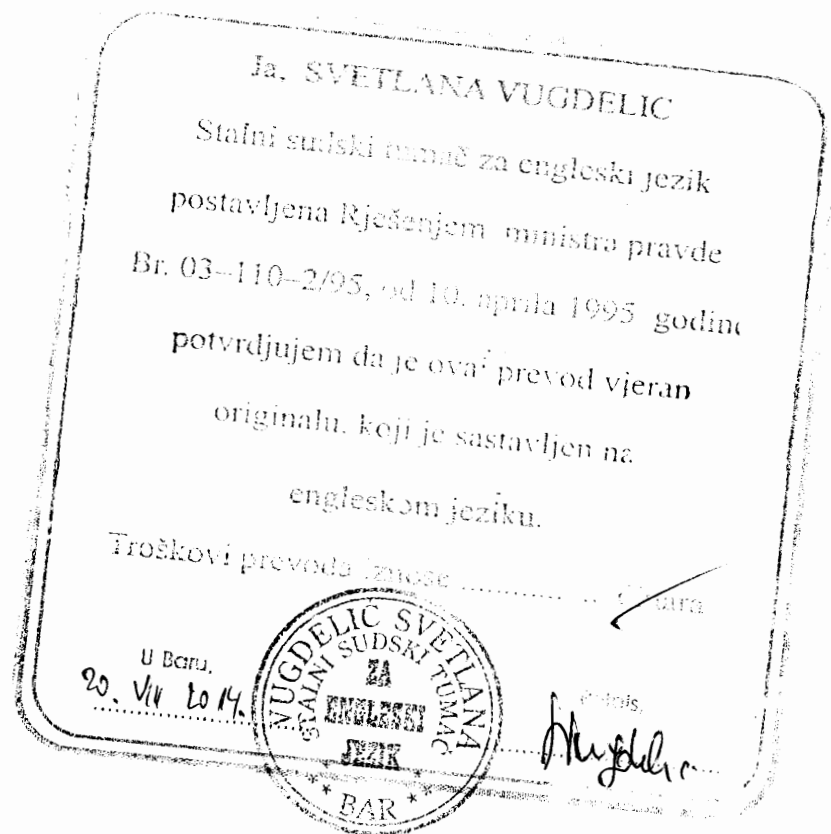 Ja, SVETLANA VUGDELIC
Stalni sudski tumač za engleski jezik
postavljena Rješenjem ministra pravde
Br. 03–110–2/95, od 10. aprila 1995 godine
potvrdjujem da je ovaj prevod vjeran
originalu, koji je sastavljen na
engleskom jeziku.
Troškovi prevoda iznose ............ .. dinara
U Baru,
20. VIII 2014.
VUGDELIĆ SVETLANA
STALNI SUDSKI TUMAČ
ZA
ENGLESKI
JEZIK
* * BAR * *
Potpis,